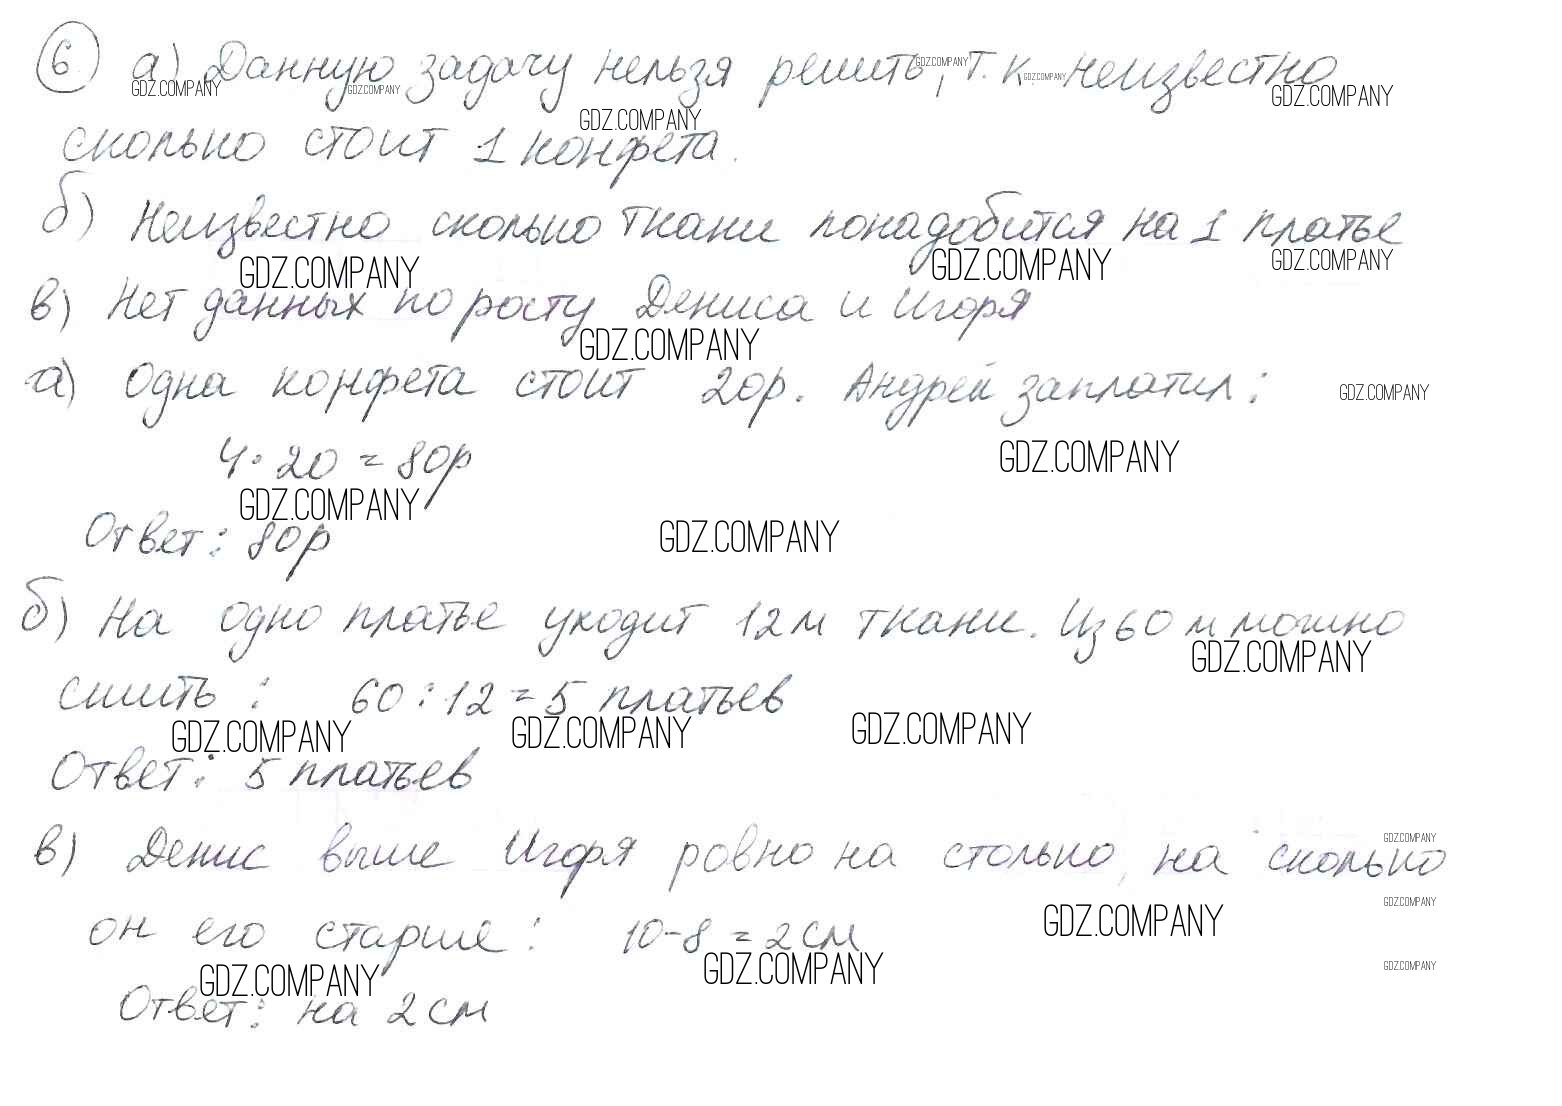 6 а) Данную задачу нельзя решить, т.к. неизвестно
GDZ.COMPANY GDZ.COMPANY GDZ.COMPANY GDZ.COMPANY GDZ.COMPANY GDZ.COMPANY
сколько стоит 1 конфета.
б) Неизвестно сколько ткани понадобится на 1 платье
GDZ.COMPANY GDZ.COMPANY GDZ.COMPANY
в) Нет данных по росту Дениса и Игоря
GDZ.COMPANY
а) Одна конфета стоит 20р. Андрей заплатил:
GDZ.COMPANY
4·20 = 80р
GDZ.COMPANY
GDZ.COMPANY
Ответ: 80р
GDZ.COMPANY
б) На одно платье уходит 12м ткани. Из 60 м можно
GDZ.COMPANY
сшить: 60:12=5 платьев
GDZ.COMPANY GDZ.COMPANY GDZ.COMPANY
Ответ: 5 платьев
GDZ.COMPANY
в) Денис выше Игоря ровно на столько, на сколько
GDZ.COMPANY
он его старше: 10-8=2см
GDZ.COMPANY
GDZ.COMPANY GDZ.COMPANY GDZ.COMPANY
Ответ: на 2см